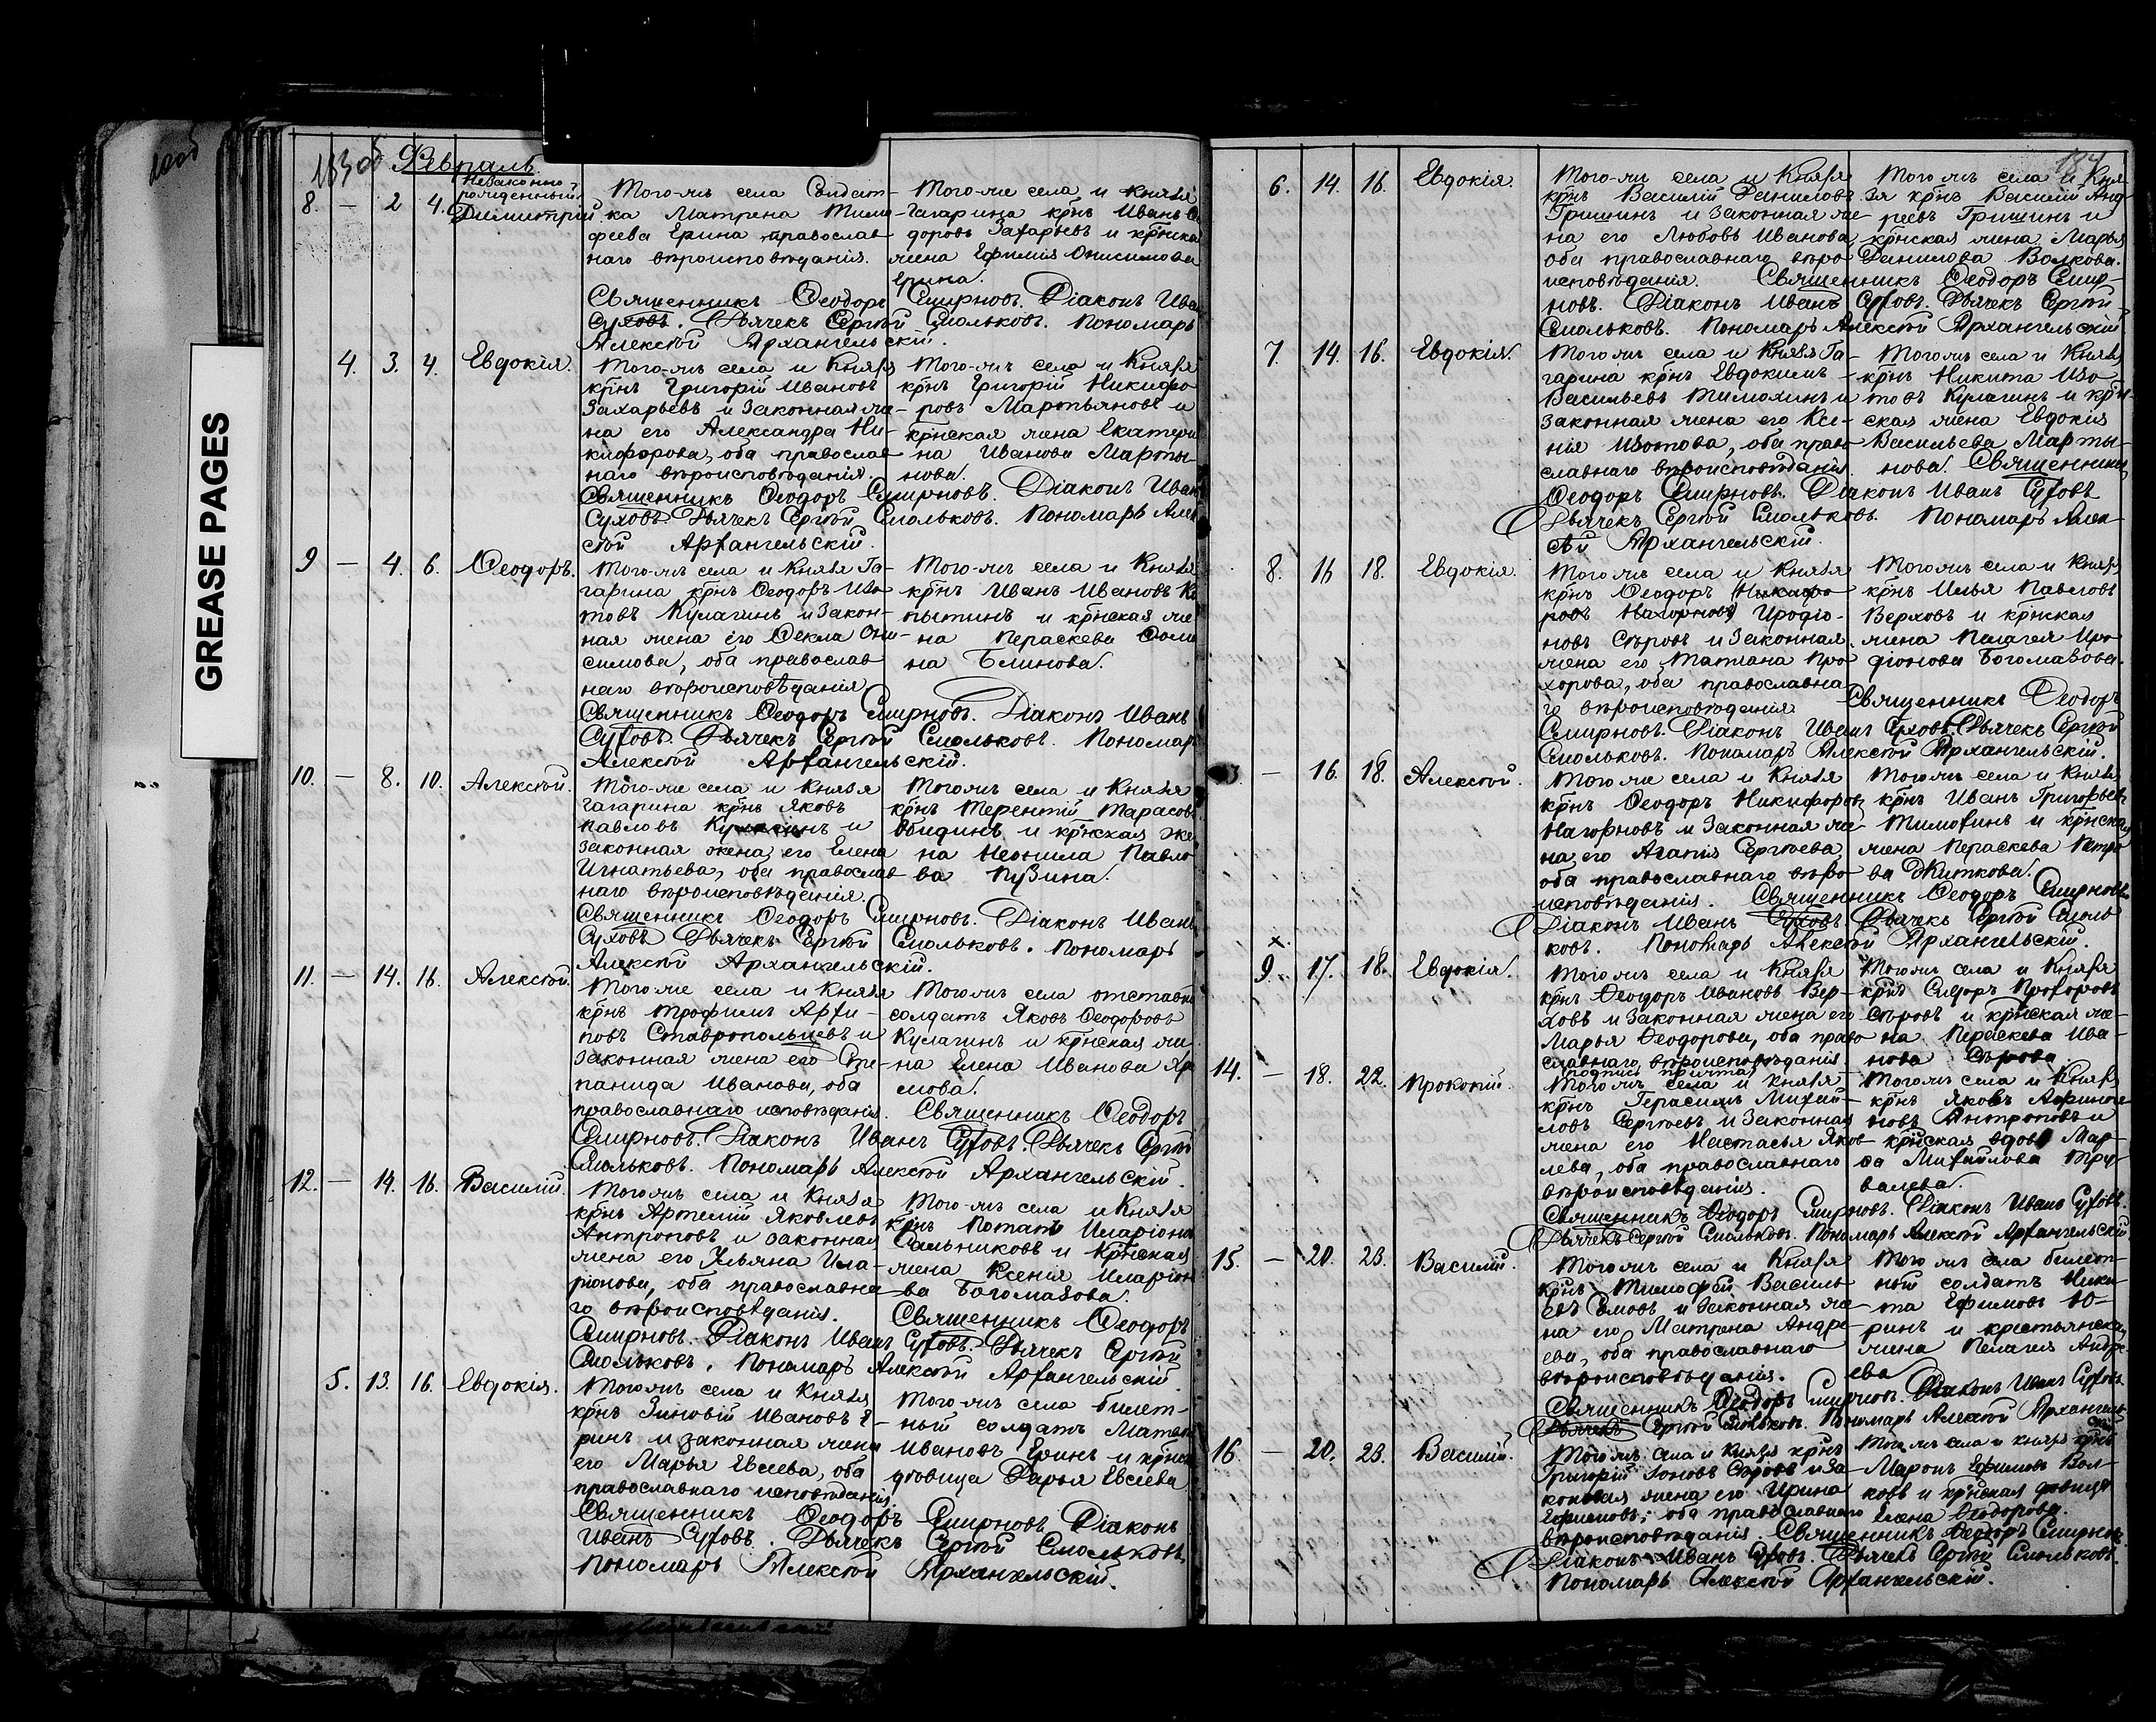 183 об
Февраль
GREASE PAGES
8. — 2 4. Незаконно
рожденный
Димитрій
Того-жъ села Солдат-
ка Матрена Тимо-
феева Ерина православ
наго вѣроисповѣданія.
Того-же села и Князя
Гагарина крнъ Иванъ
доровъ Захарьевъ и крнска
жена Ефимія Онисимова
Ерина.
Священникъ Ѳеодоръ Смирновъ. Діаконъ Ива
Суховъ. Дьячекъ Сергѣй Смольковъ. Пономарь
Алексѣй Архангельскій.
4. 3. 4. Евдокія.
Того-жъ села и Князя
крнъ Григорій Ивановъ
Захарьевъ и законная же-
на его Александра Ни-
кифорова, оба православ
наго вѣроисповѣданія.
Того-жъ села и Князя
крнъ Григорій Никифо
ровъ Мартьяновъ и
крнская жена Екатери
на Иванова Марты-
нова.
Священникъ Ѳеодоръ Смирновъ. Діаконъ Иван
Суховъ. Дьячекъ Сергѣй Смольковъ. Пономарь Алек
сѣй Архангельскій.
9 — 4. 6. Ѳеодоръ.
Того-жъ села и Князя Га-
гарина крнъ Ѳеодоръ Изо
товъ Кулагинъ и Закон-
ная жена его Ѳекла Они-
симова, оба православ
наго вѣроисповѣданія
Того-жъ села и Князя
крнъ Иванъ Ивановъ
пытинъ и крнская же
на Пераскева Ѳоми
на Блинова.
Священникъ Ѳеодоръ Смирновъ. Діаконъ Иванъ
Суховъ. Дьячекъ Сергѣй Смольковъ. Пономарь
Алексѣй Архангельскій.
10. — 8. 10. Алексѣй.
Того-же села и Князя
Гагарина крнъ Яковъ
Павловъ и
законная жена его Елена
Игнатьева, оба православ
наго вѣроисповѣданія.
Того-жъ села и Князя
крнъ Терентій Тарасовъ
Обидинъ и крнская же
на Неонила Павло
ва Пузина.
Священникъ Ѳеодоръ Смирновъ. Діаконъ Иванъ
Суховъ Дьячекъ Сергѣй Смольковъ. Пономарь
Алексѣй Архангельскій.
11. — 14. 16. Алексѣй.
Того-же села и Князя
крнъ Трофимъ Архи-
повъ Ставропольцевъ и
законная жена его Сте-
панида Иванова, оба
православнаго исповѣданія.
Того-жъ села отставн
солдатъ Яковъ Ѳеодоровъ
Кулагинъ и крнская же
на Елена Иванова Хра
мова.
Священникъ Ѳеодоръ
Смирновъ. Діаконъ Иванъ Суховъ. Дьячекъ Сергѣй
Смольковъ. Пономарь Алексѣй Архангельскій.
12. — 14. 16. Василій.
Того-жъ села и Князя
крнъ Артемій Яковлевъ
Антроповъ и законная
жена его Ульяна Ила-
ріонова, оба православна
го вѣроисповѣданія.
Того-жъ села и Князя
крнъ Потапъ Иларіоно
Сальниковъ и крнская
жена Ксенія Иларіон
ва Богомазова.
Священникъ Ѳеодоръ
Смирновъ. Діаконъ Иванъ Суховъ. Дьячекъ Сергѣй
Смольковъ. Пономарь Алексѣй Архангельскій.
5. 13. 16. Евдокія.
Того-жъ села и Князя
крнъ Зиновій Ивановъ Е-
ринъ и законная жена
его Марья Евсеева, оба
православнаго исповѣданія.
Того-жъ села билет-
ный солдатъ
Ивановъ Еринъ и крнск
дѣвица Дарья Евсеева
Священникъ Ѳеодоръ Смирновъ Діаконъ
Иванъ Суховъ. Дьячекъ Сергѣй Смольковъ
Пономарь Алексѣй Архангельскій.
184
6. 14. 16. Евдокія.
Того-жъ села и Князя
крнъ Василій Даниловъ
Гришинъ и законная же-
на его Любовь Иванова
оба православнаго вѣро
исповѣданія.
Того-жъ села и Кня-
зя крнъ Василій Анд-
реевъ Гришинъ и
крнская жена Марья
Данилова Волкова.
Священникъ Ѳеодоръ Смир-
новъ. Діаконъ Иванъ Суховъ. Дьячекъ Сергѣй
Смольковъ. Пономарь Алексѣй Архангельскій
7. 14. 16. Евдокія.
Того-жъ села и Князя Га-
гарина крнъ Евдокимъ
Васильевъ Тимохинъ и
законная жена его Ксе-
нія Изотова, оба право
славнаго вѣроисповѣданія.
Того-жъ села и Князя
крнъ Никита Изо-
товъ Кулагинъ и крн-
ская жена Евдокія
Васильева Марты-
нова. Священникъ
Ѳеодоръ Смирновъ. Діаконъ Иванъ Суховъ
Дьячекъ Сергѣй Смольковъ. Пономарь Алек-
сѣй Архангельскій.
8. 16 18. Евдокія.
Того-жъ села и Князя
крнъ Ѳеодоръ Никифо
ровъ Нагорновъ Иродіо-
новъ Сѣровъ и законная
жена его Татіана Про
хорова, оба православна
го вѣроисповѣданія
Того-жъ села и Князя
крнъ Илья Павловъ
Верховъ и крнская
жена Пелагея Иро
діонова Богомазова.
Священникъ Ѳеодоръ
Смирновъ. Діаконъ Иванъ Суховъ. Дьячекъ Сергѣй
Смольковъ. Пономарь Алексѣй Архангельскій.
13 — 16. 18. Алексѣй.
Того-же села и Князя
крнъ Ѳеодоръ Никифоровъ
Нагорновъ и законная же-
на его Агапія Сергѣева,
оба православнаго вѣро
исповѣданія.
Того-жъ села и Князя
крнъ Иванъ Григорьевъ
Тимохинъ и крнская
жена Пераскева Петро
ва Житкова.
Священникъ Ѳеодоръ Смирновъ
Діаконъ Иванъ Суховъ. Дьячекъ Сергѣй Смоль
ковъ. Пономарь Алексѣй Архангельскій.
х
9. 17. 18. Евдокія.
Того-жъ села и Князя
крнъ Ѳеодоръ Ивановъ Вер-
ховъ и законная жена его
Марья Ѳеодорова, оба право
славнаго вѣроисповѣданія
подписи причта
Того-жъ села и Князя
крнъ Сидоръ Прохоровъ
Сѣровъ и крнская же-
на Пераскева Ива-
нова Сѣрова
14. — 18. 22. Прокопій.
Того-жъ села и Князя
крнъ Герасимъ Михай-
ловъ Сергѣевъ и Законная
жена его Настасья Яков
лева, оба православнаго
вѣроисповѣданія.
Того-жъ села и Князя
крнъ Яковъ
новъ Антроповъ и
крнская вдова Мар-
ѳа Михайлова Тру-
валева.
Священникъ Ѳеодоръ Смирновъ. Діаконъ Иванъ Суховъ.
Дьячекъ Сергѣй Смольковъ. Пономарь Алексѣй Архангельскій
15. — 20. 23. Василій.
Того-жъ села и Князя
крнъ Тимофѣй Василь
евъ и законная же-
на его Матрена Андре-
ева, оба православнаго
вѣроисповѣданія.
Того-жъ села билет-
ный солдатъ Ники-
та Ефимовъ Ю-
ринъ и крестьянская
жена Пелагея Андре
ева
Священникъ Ѳеодоръ Смирновъ. Діаконъ Иванъ Суховъ
Дьячекъ Сергѣй Смольковъ. Пономарь Алексѣй Архангель
скій
16 — 20. 23. Василій.
Того-жъ села и Князя крнъ
Григорій Сѣровъ и за-
конная жена его Ирина
Ефимовъ, оба православнаго
вѣроисповѣданія.
Того-жъ села и князя крнъ
Маронъ Ефимовъ Вол-
ковъ и крнская дѣвица
Елена Ѳеодорова.
Священникъ Ѳеодоръ Смирновъ
Діаконъ Иванъ Суховъ. Дьячекъ Сергѣй Смольковъ.
Пономарь Алексѣй Архангельскій.